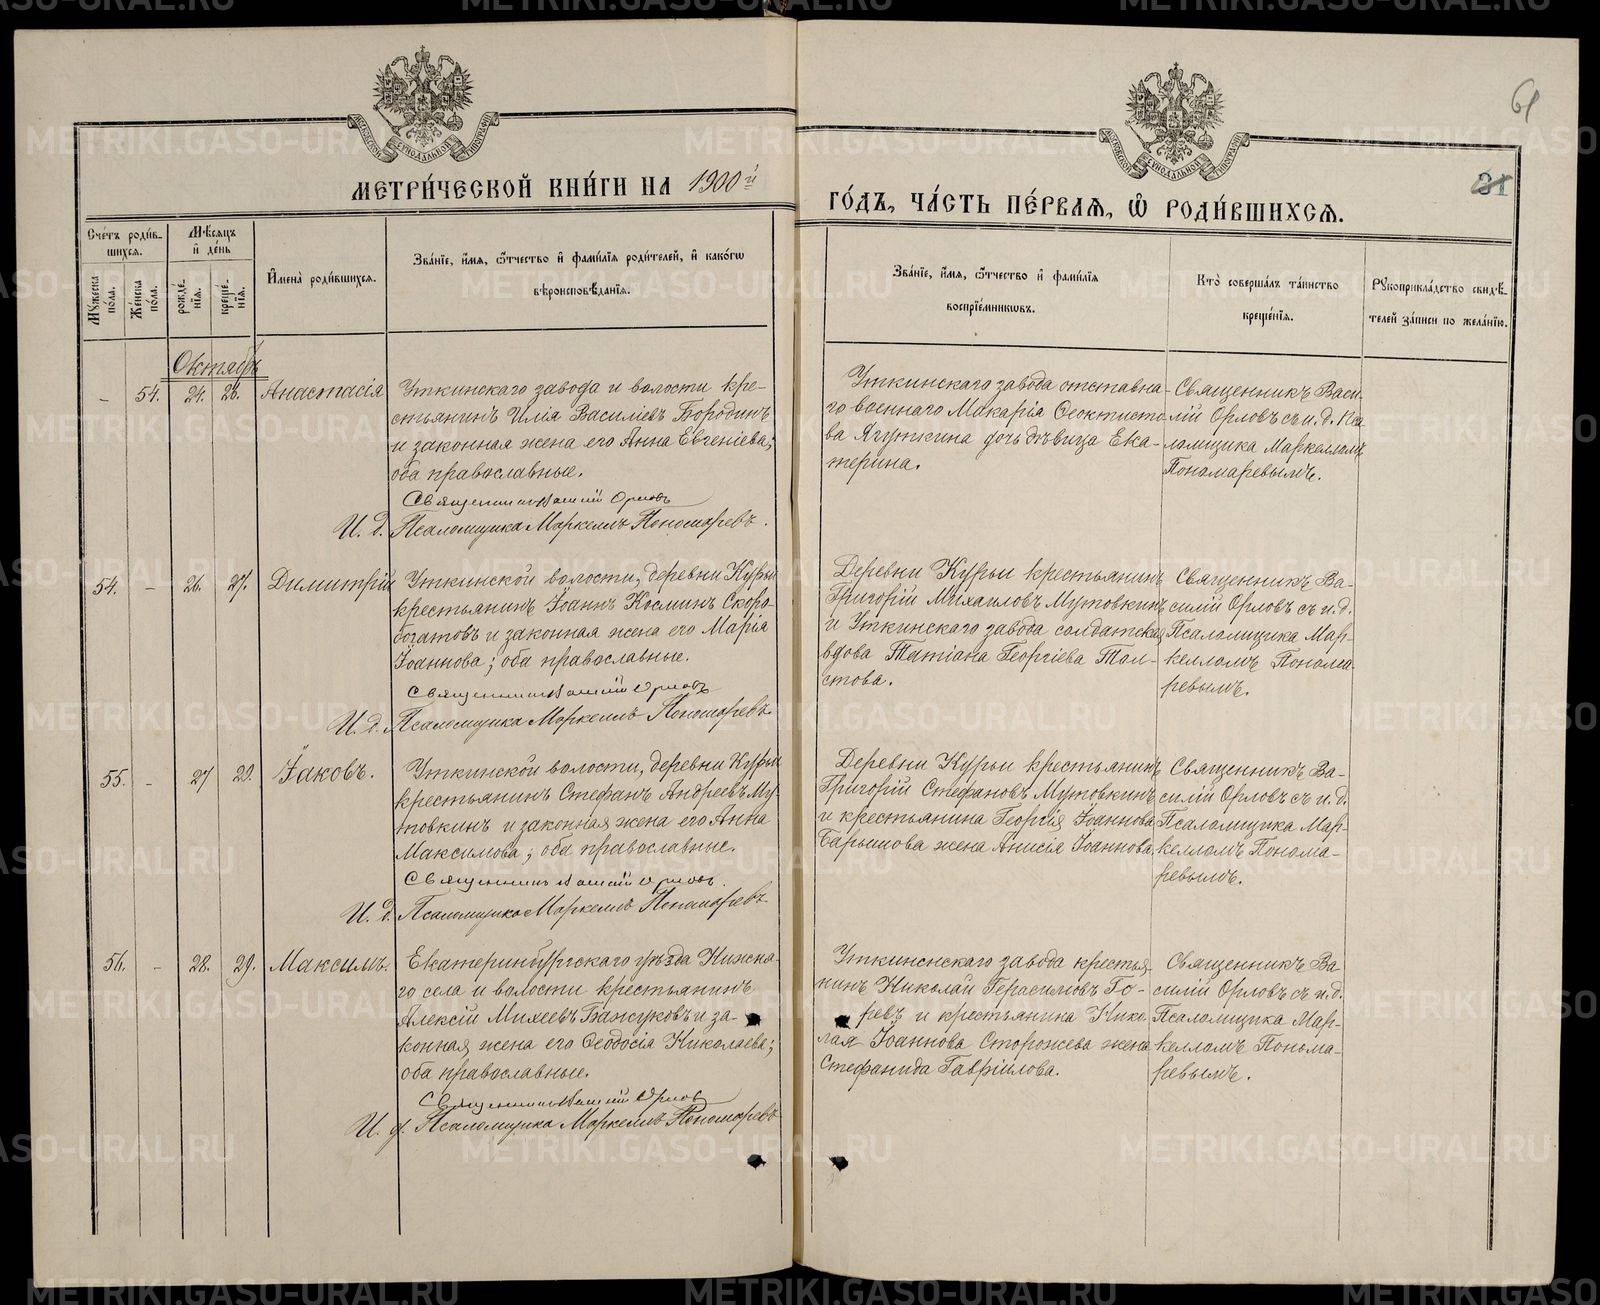 61
31
МЕТРИ́ЧЕСКОЙ КНИ́ГИ НА 1900й
ГО́ДЪ, ЧА́СТЬ ПЕ́РВАЯ, Ѽ РОДИ́ВШИХСЯ.
Сче́тъ роди́в-
шихся.
Мѣ́сяцъ
и҆ де́нь
Му́жеска
по́ла.
Же́нска
по́ла.
рожде́-
нїя.
креще́-
нїя.
И҆мена̀ роди́вшихся.
Зва́нїе, и҆́мя, ѻ҆́тчество и҆ фами́лїя роди́телей, и҆ како́гѡ
вѣроисповѣ́данїя.
Зва́нїе, и҆́мя, ѻ҆́тчество и҆ фами́лїя
воспрїе́мникѡвъ.
Кто̀ соверша́лъ та́инство
креще́нїя.
Рꙋкоприкла́дство свидѣ́-
телей за́писи по жела́нїю.
Октябрь
- 54. 24. 26. Анастасія
Уткинскаго завода и волости кре-
стьянинъ Илія Василіевъ Бородинъ
и законная жена его Анна Евгеніева;
оба православные.
Священникъ Василій Орловъ
И. д. Псаломщика Маркеллъ Пономаревъ.
Уткинскаго завода отставна-
го военнаго Макарія Ѳеоктисто-
ва Ягуткина дочь дѣвица Ека-
терина.
Священникъ Васи-
лій Орловъ съ и. д. Пса-
ломщика Маркелломъ
Пономаревымъ.
54. - 26. 27. Димитрій
Уткинской волости, деревни Курьи
крестьянинъ Іоаннъ Косминъ Скоро-
богатовъ и законная жена его Марія
Іоаннова; оба православные.
Священникъ Василій Орловъ
И. д. Псаломщика Маркеллъ Пономаревъ.
Деревни Курьи крестьянинъ
Григорій Михаиловъ Мутовкинъ
и Уткинскаго завода солдатская
вдова Татіана Георгіева Тол-
стова.
Священникъ Ва-
силій Орловъ съ и. д.
Псаломщика Мар-
келломъ Понома-
ревымъ.
55. - 27 29. Іаковъ.
Уткинской волости, деревни Курьи
крестьянинъ Стефанъ Андреевъ Му-
товкинъ и законная жена его Анна
Максимова; оба православные.
Священникъ Василій Орловъ.
И. д. Псаломщика Маркеллъ Пономаревъ.
Деревни Курьи крестьянинъ
Григорій Стефановъ Мутовкинъ
и крестьянина Георгія Іоаннова
Барышова жена Анисія Іоаннова.
Священникъ Ва-
силій Орловъ съ и. д.
Псаломщика Мар-
келломъ Понома-
ревымъ.
56. - 28. 29. Максимъ.
Екатеринбургскаго уѣзда Нижня-
го села и волости крестьянинъ
Алексій Михеевъ и за-
конная жена его Ѳеодосія Николаева;
оба православные.
Священникъ Василій Орловъ
И. д. Псаломщика Маркеллъ Пономаревъ
Уткинскаго завода кресть-
нинъ Николай Герасимовъ Го-
ревъ и крестьянина Нико-
лая Іоаннова Сторожева жена
Стефанида Гавріилова.
Священникъ Ва-
силій Орловъ съ и. д.
Псаломщика Мар-
келломъ Понома-
ревымъ.
METRIKI.GASO-URAL.RU